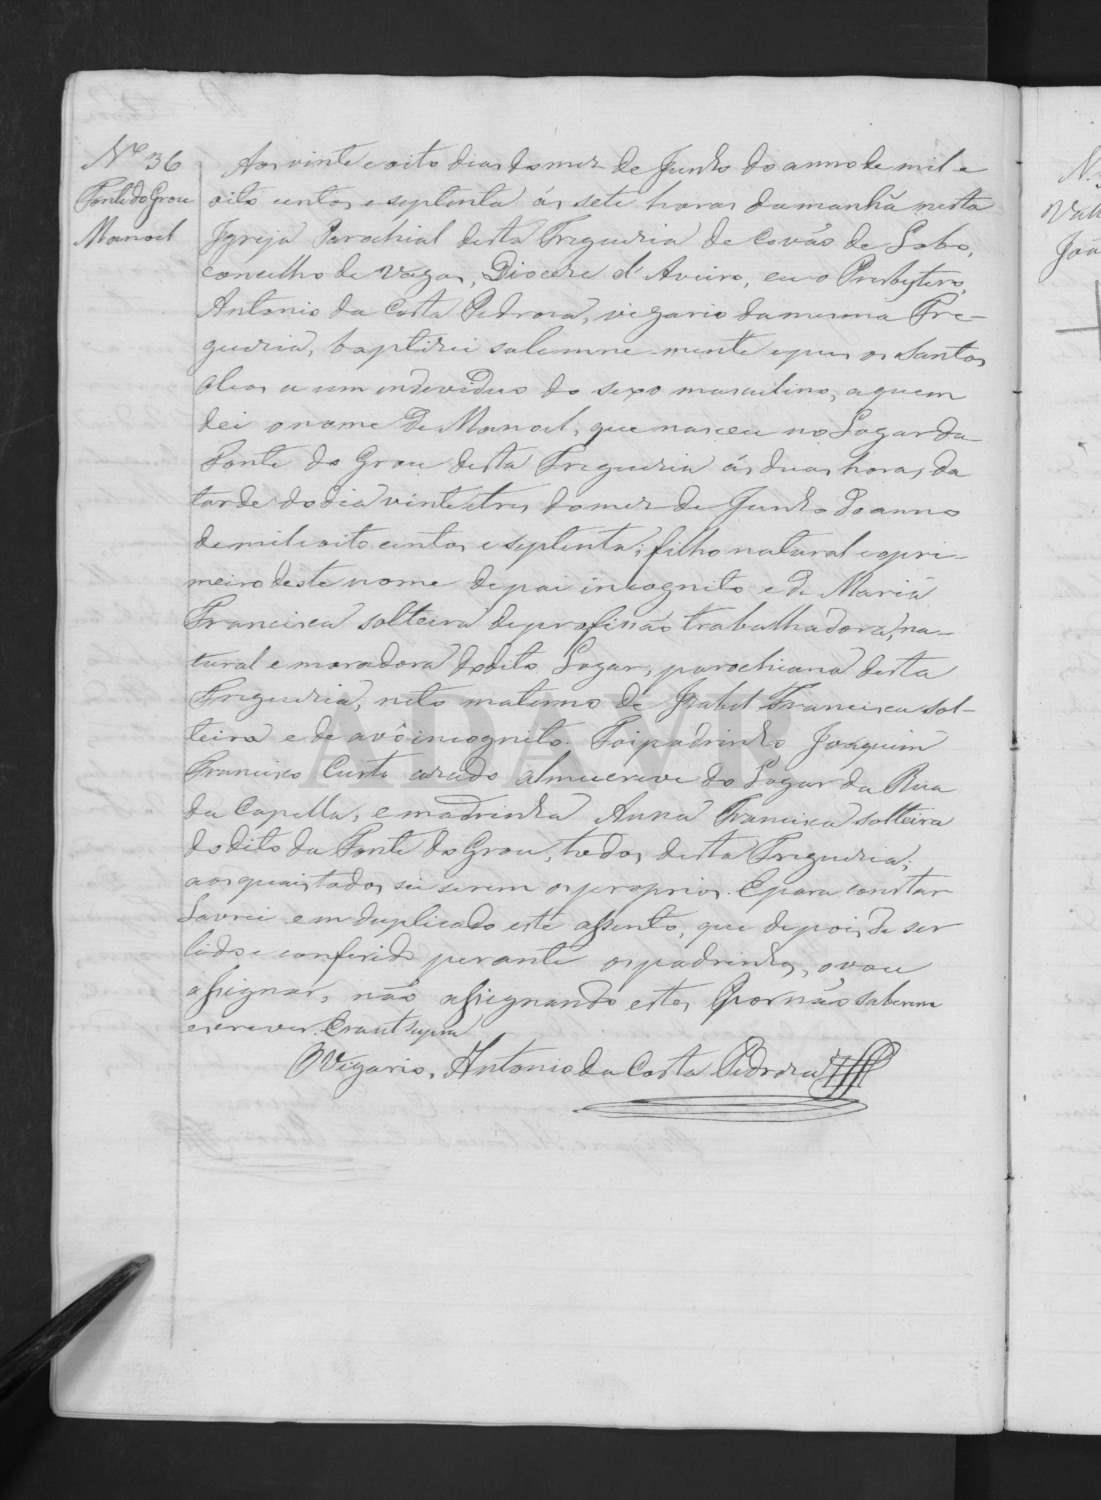 Nº 36
Fonte do Grou
Manoel
Aos vinte e oito dias do mez de Junho do anno de mil e
oito centos e septenta ás sete horas da manhã nesta
Igreja Parochial desta Freguezia de Covão de Lobo,
concelho de Vagos, Diocese d'Aveiro, eu o Presbytero,
Antonio da Costa Pedroza, vigario da mesma Fre-
guezia, baptizei solemne-mente e puz os Santos
oleos a um individuo do sexo masculino, a quem
dei o nome de Manoel, que nasceu no Logar da
Fonte do Grou desta Freguezia ás duas horas da
tarde do dia vinte e tres do mez de Junho do anno
de mil e oito centos e septenta; filho natural e o pri-
meiro deste nome de pai incognito e de Maria
Francisca solteira de profissão trabalhadora, na-
tural e moradora do dito Logar, parochiana desta
Freguezia, neto materno de Izabel Francisca sol-
teira e de avô incognito. Foi padrinho Joaquim
Francisco Custo cazado almucreve do Logar da Rua
da Capella, e madrinha Anna Francisca solteira
do dito da Fonte do Grou, todos desta Freguezia;
aos quais todos sei serem os proprios. E para constar
Lavrei em duplicado este assento, que depois de ser
lido e conferido perante os padrinhos, o vou
assignar, não assignando estes por não saberem
escrever. Era ut supra
O Vigario, Antonio da Costa Pedroza
ADAVR
Nº
João